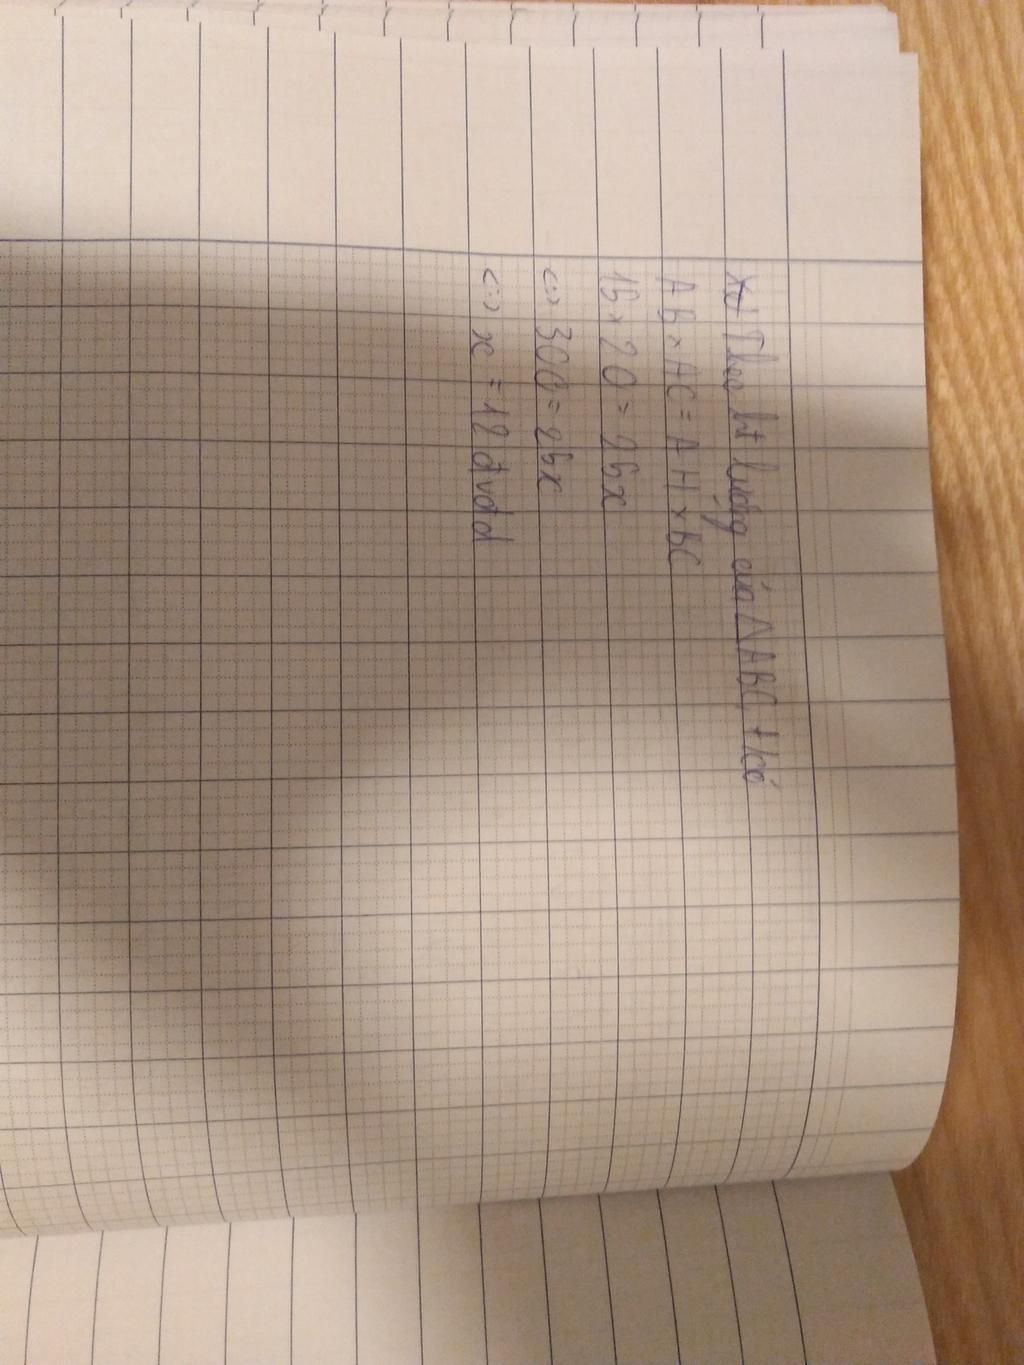 Xét Theo ht lượng của ΔABC, + có
AB × AC = AH × BC
15 × 20 = 25x
<=> 300 = 25x
<=> x = 12 đvđd